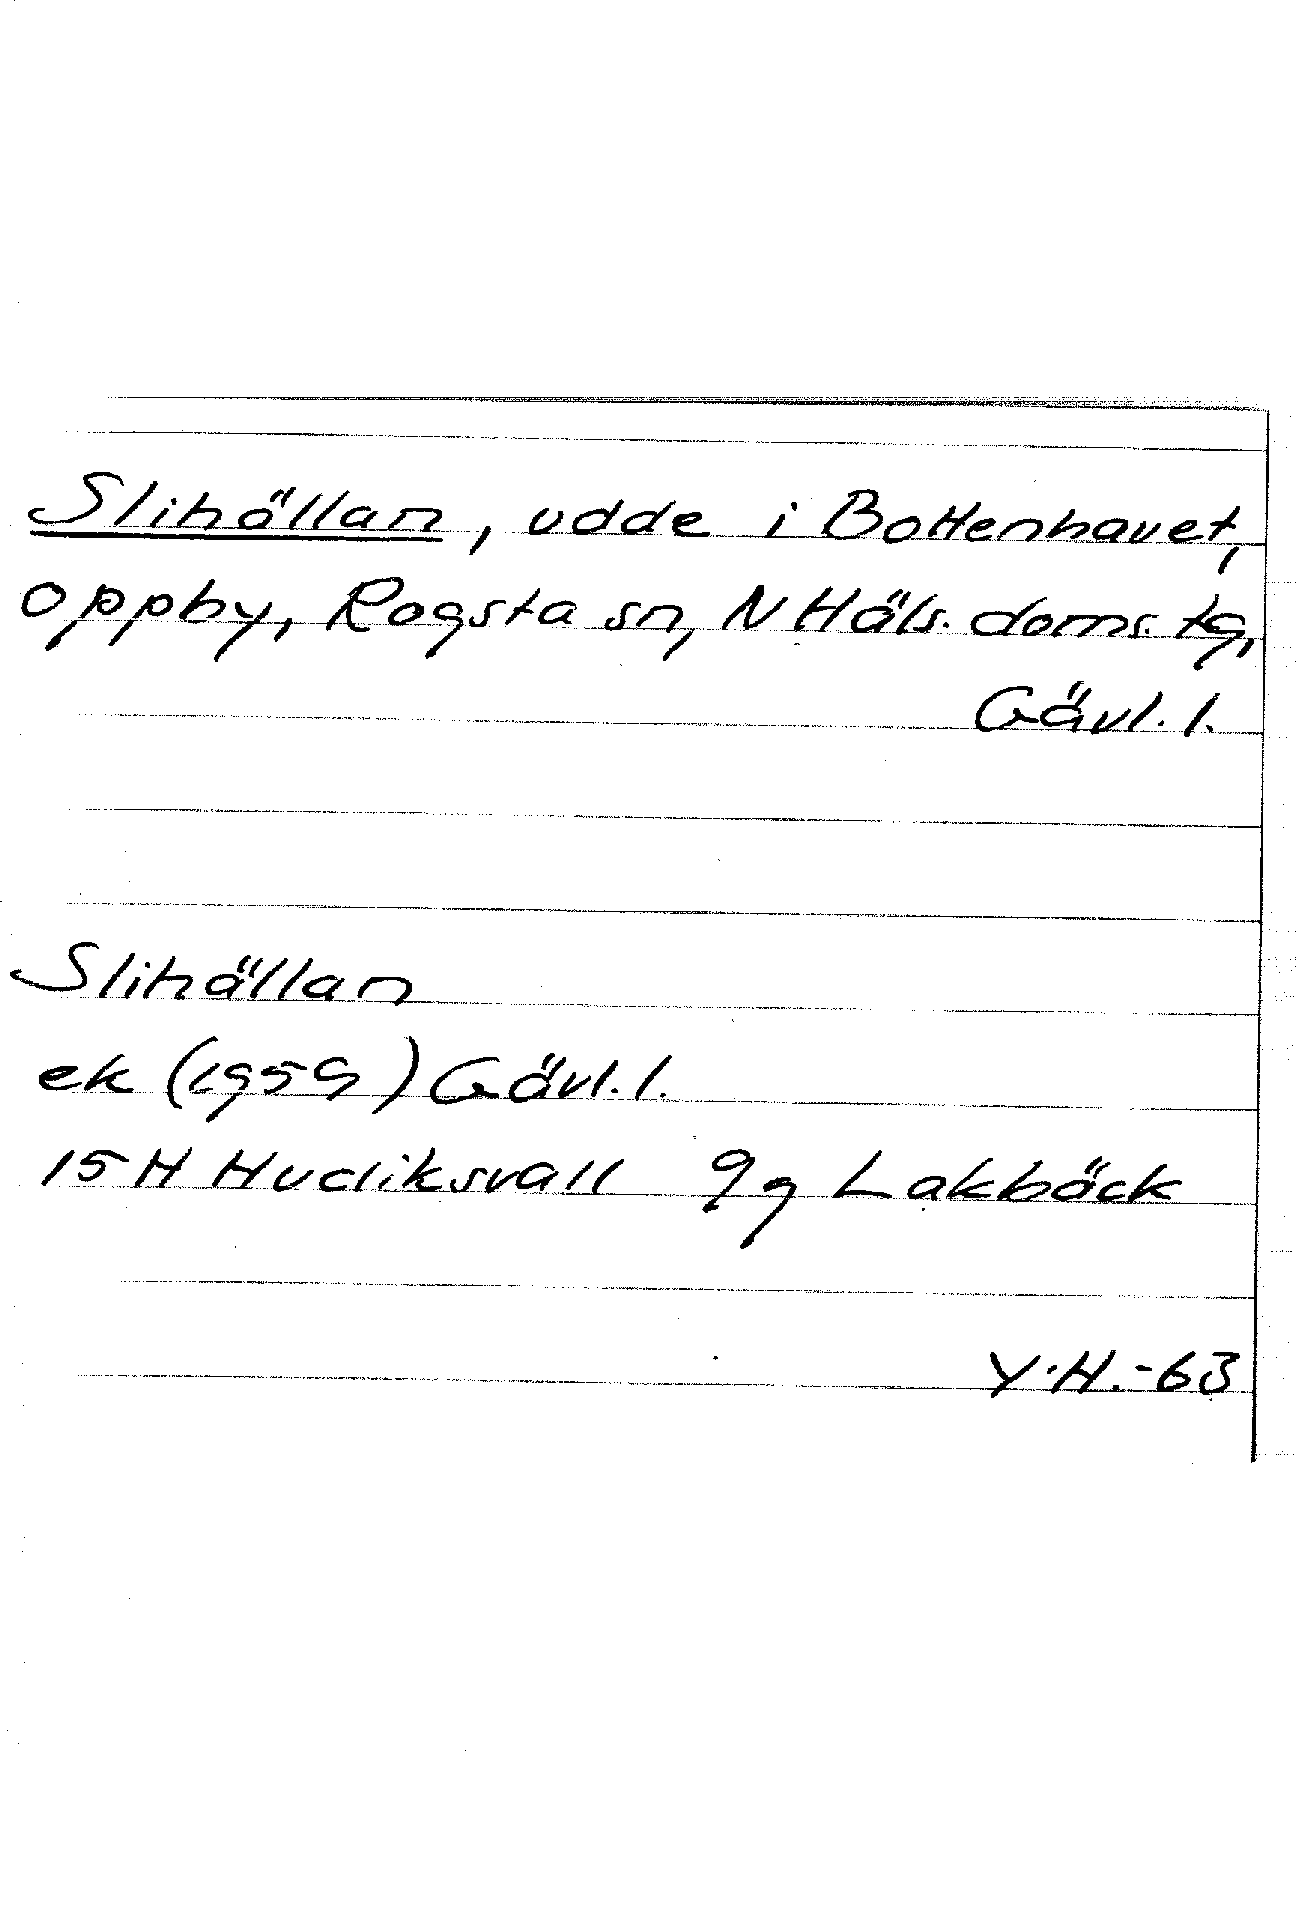 Slihällan, udde i Bottenhavet,
Oppby, Rogsta sn, N Häls. doms. tg,
Gävl. l.
Slihällan
ek (1959) Gävl. l.
15 H Hudiksvall 9g Lakbäck
Y.H.-63